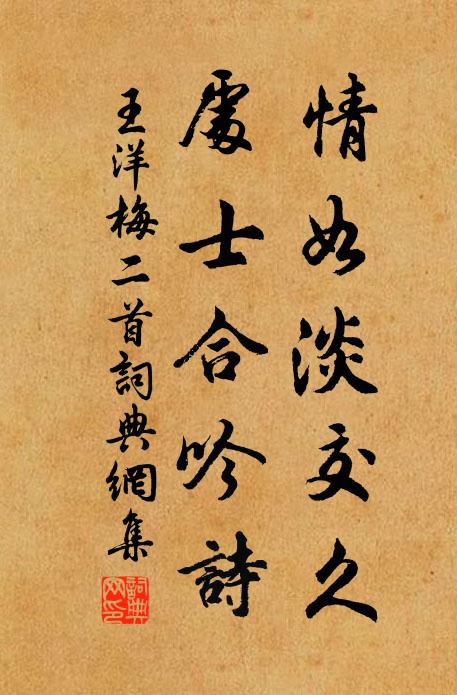 情如淡交久
處士合吟詩
王洋梅二首詞典網集
詞典網印